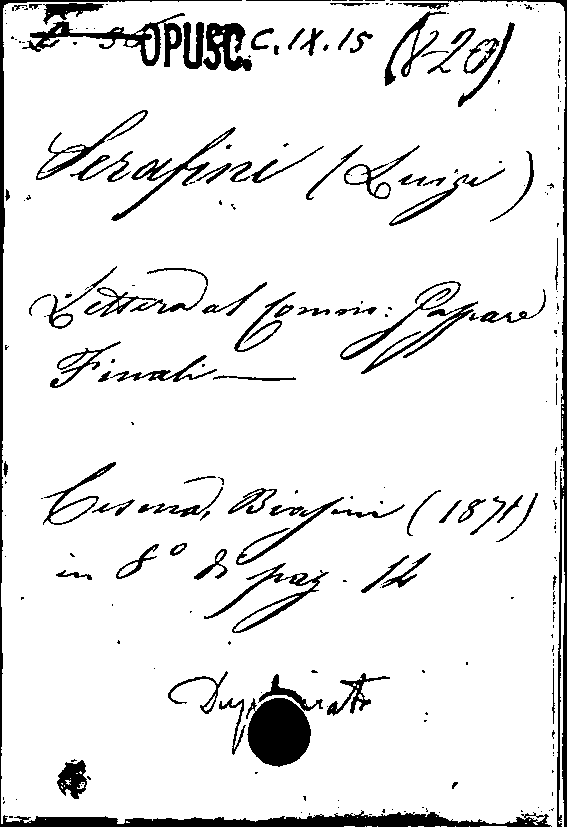 OPUSC. C. IX. 15 (820)
Serafini (Luigi)
Lettera al Comm: Gaspare
Finali —
Cesena, Biasini (1871)
in 8° di pag. 12
Duplicato